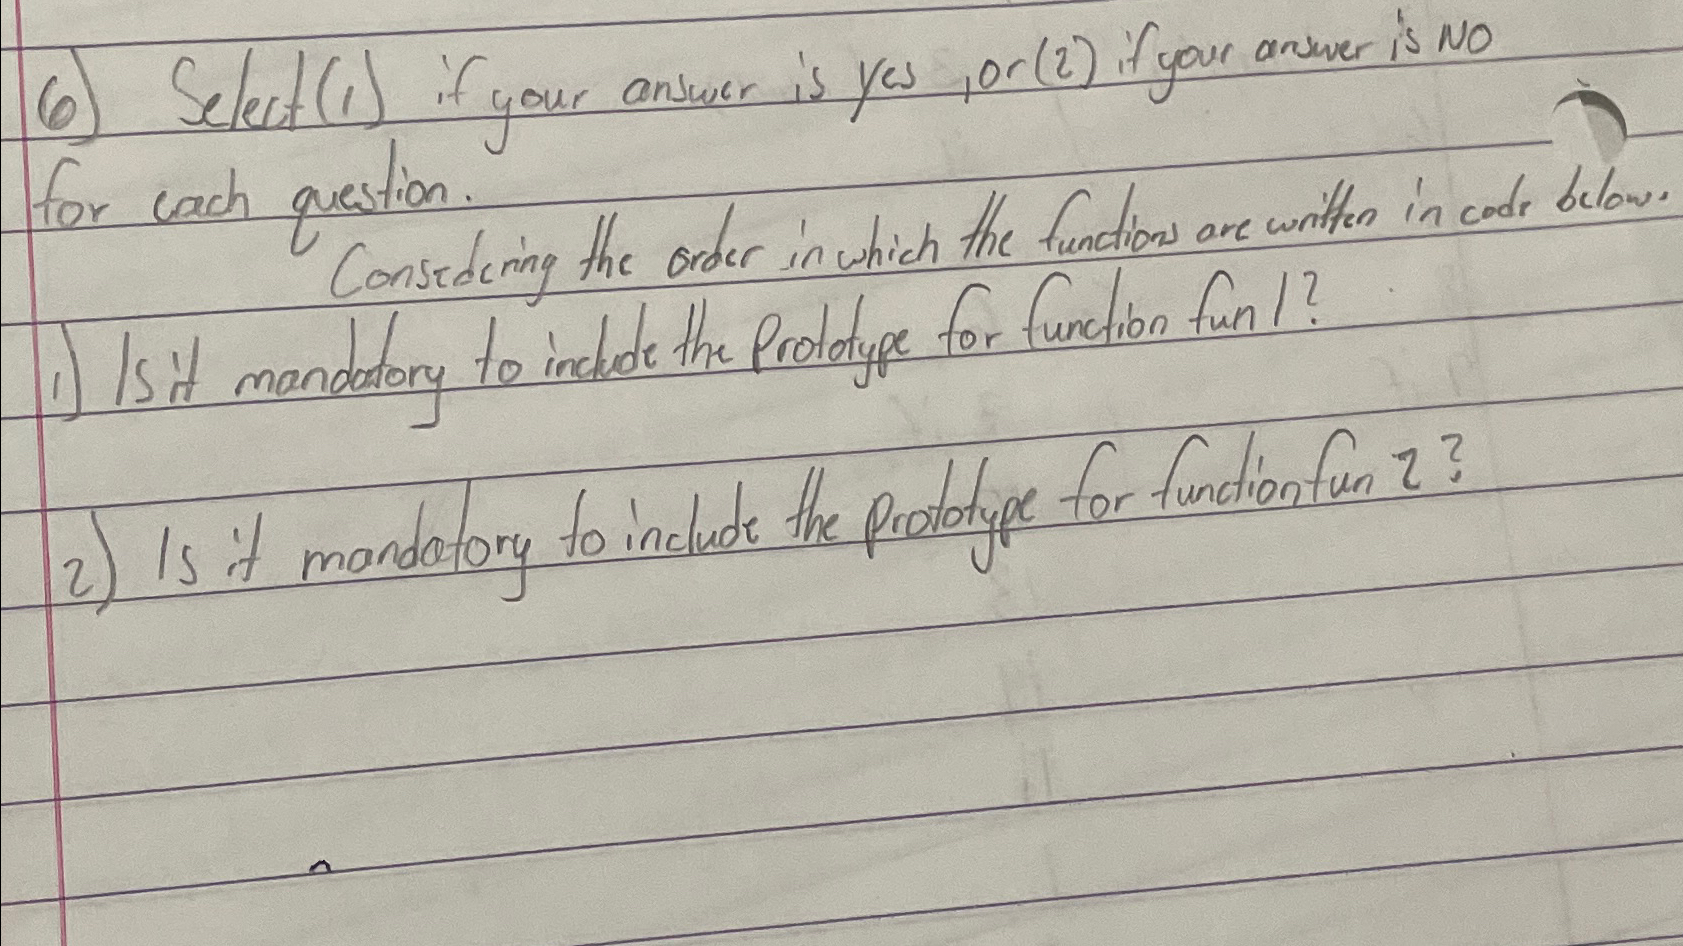 6) Select (1) if your answer is yes, or (2) if your answer is NO
for each question.
Considering the order in which the functions are written in code below.
1) Is it mandatory to include the Prototype for function fun1?
2) Is it mandatory to include the prototype for function fun2?